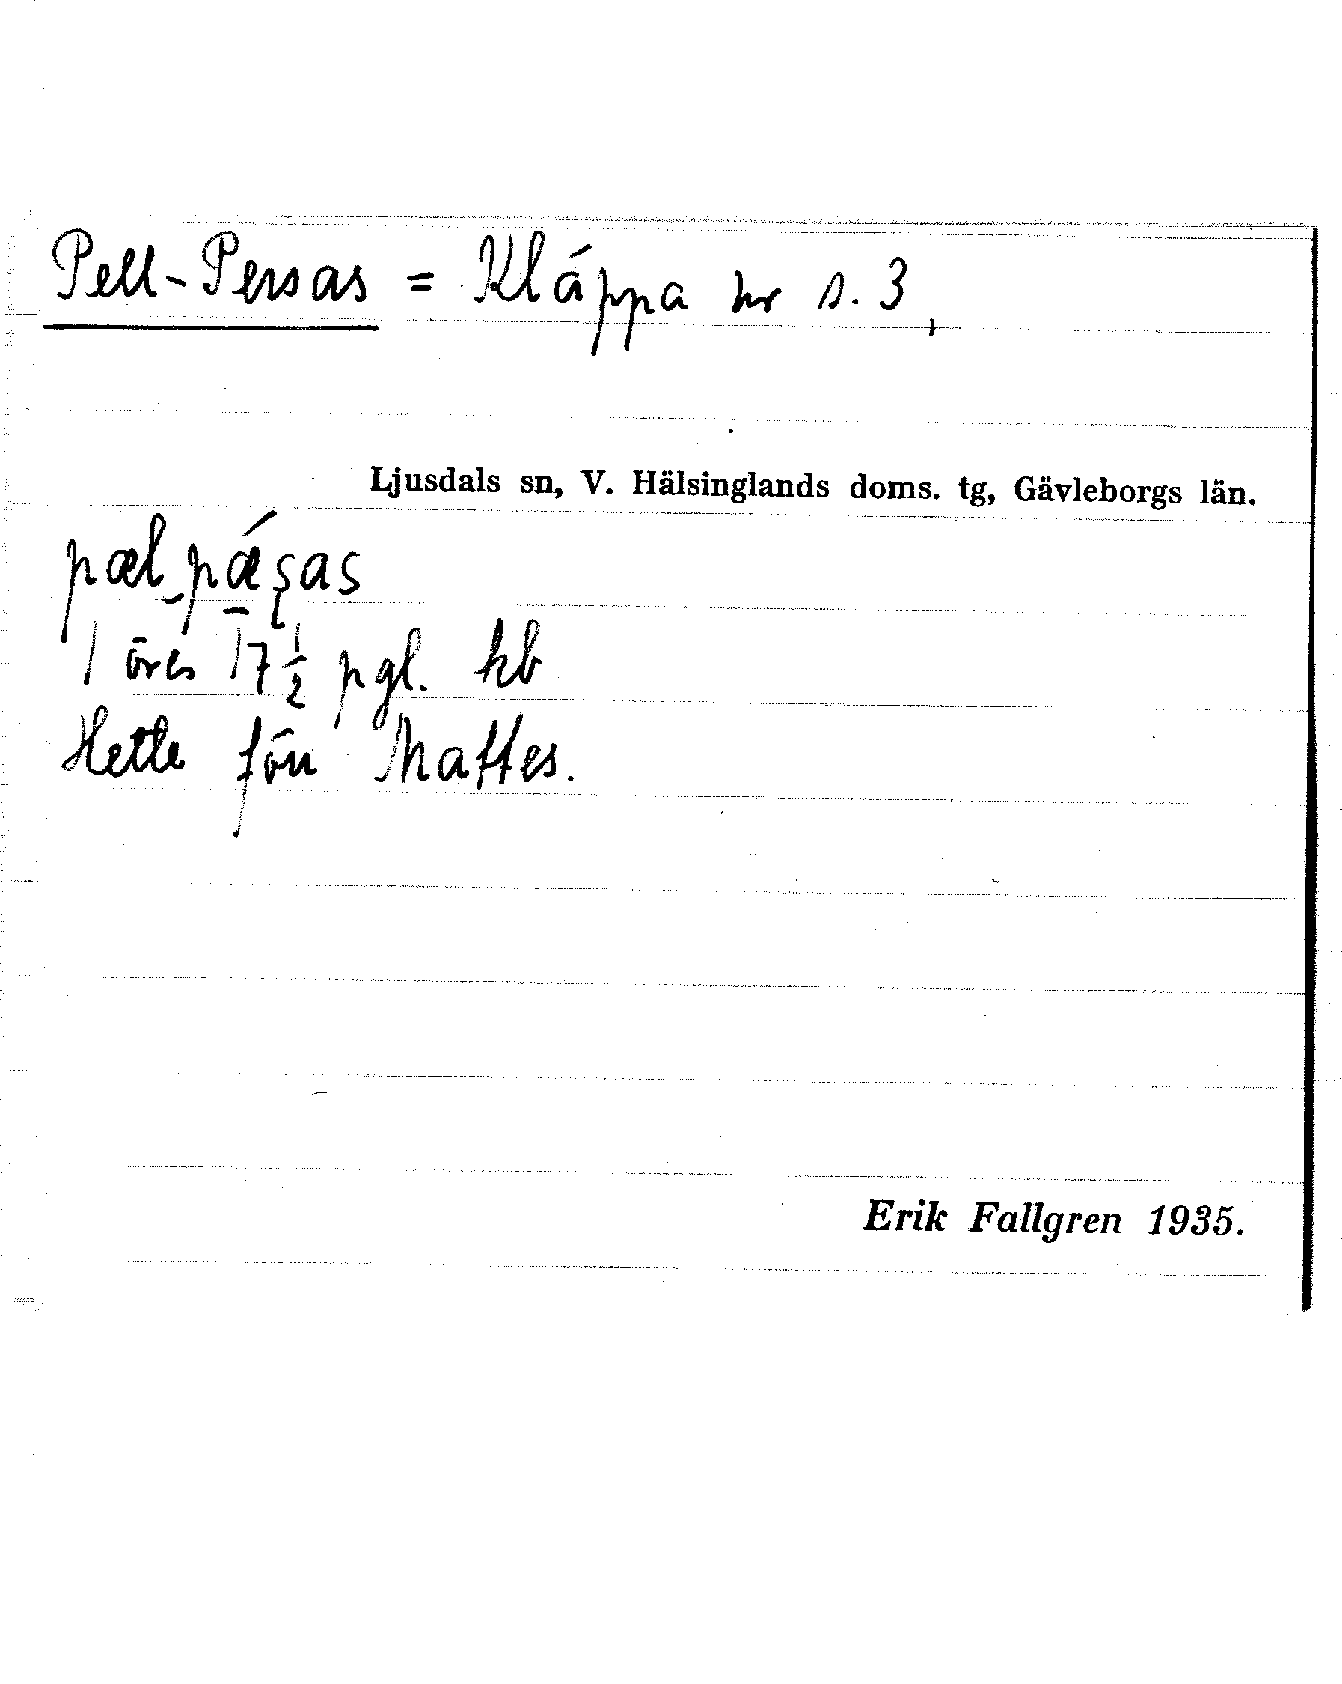 Pell-Persas = Kläppa nr s. 3,
Ljusdals sn, V. Hälsinglands doms. tg, Gävleborgs län.
pæl-pǽşas
1 öres 17½ pgl. hb
Hette förr Mattes.
Erik Fallgren 1935.